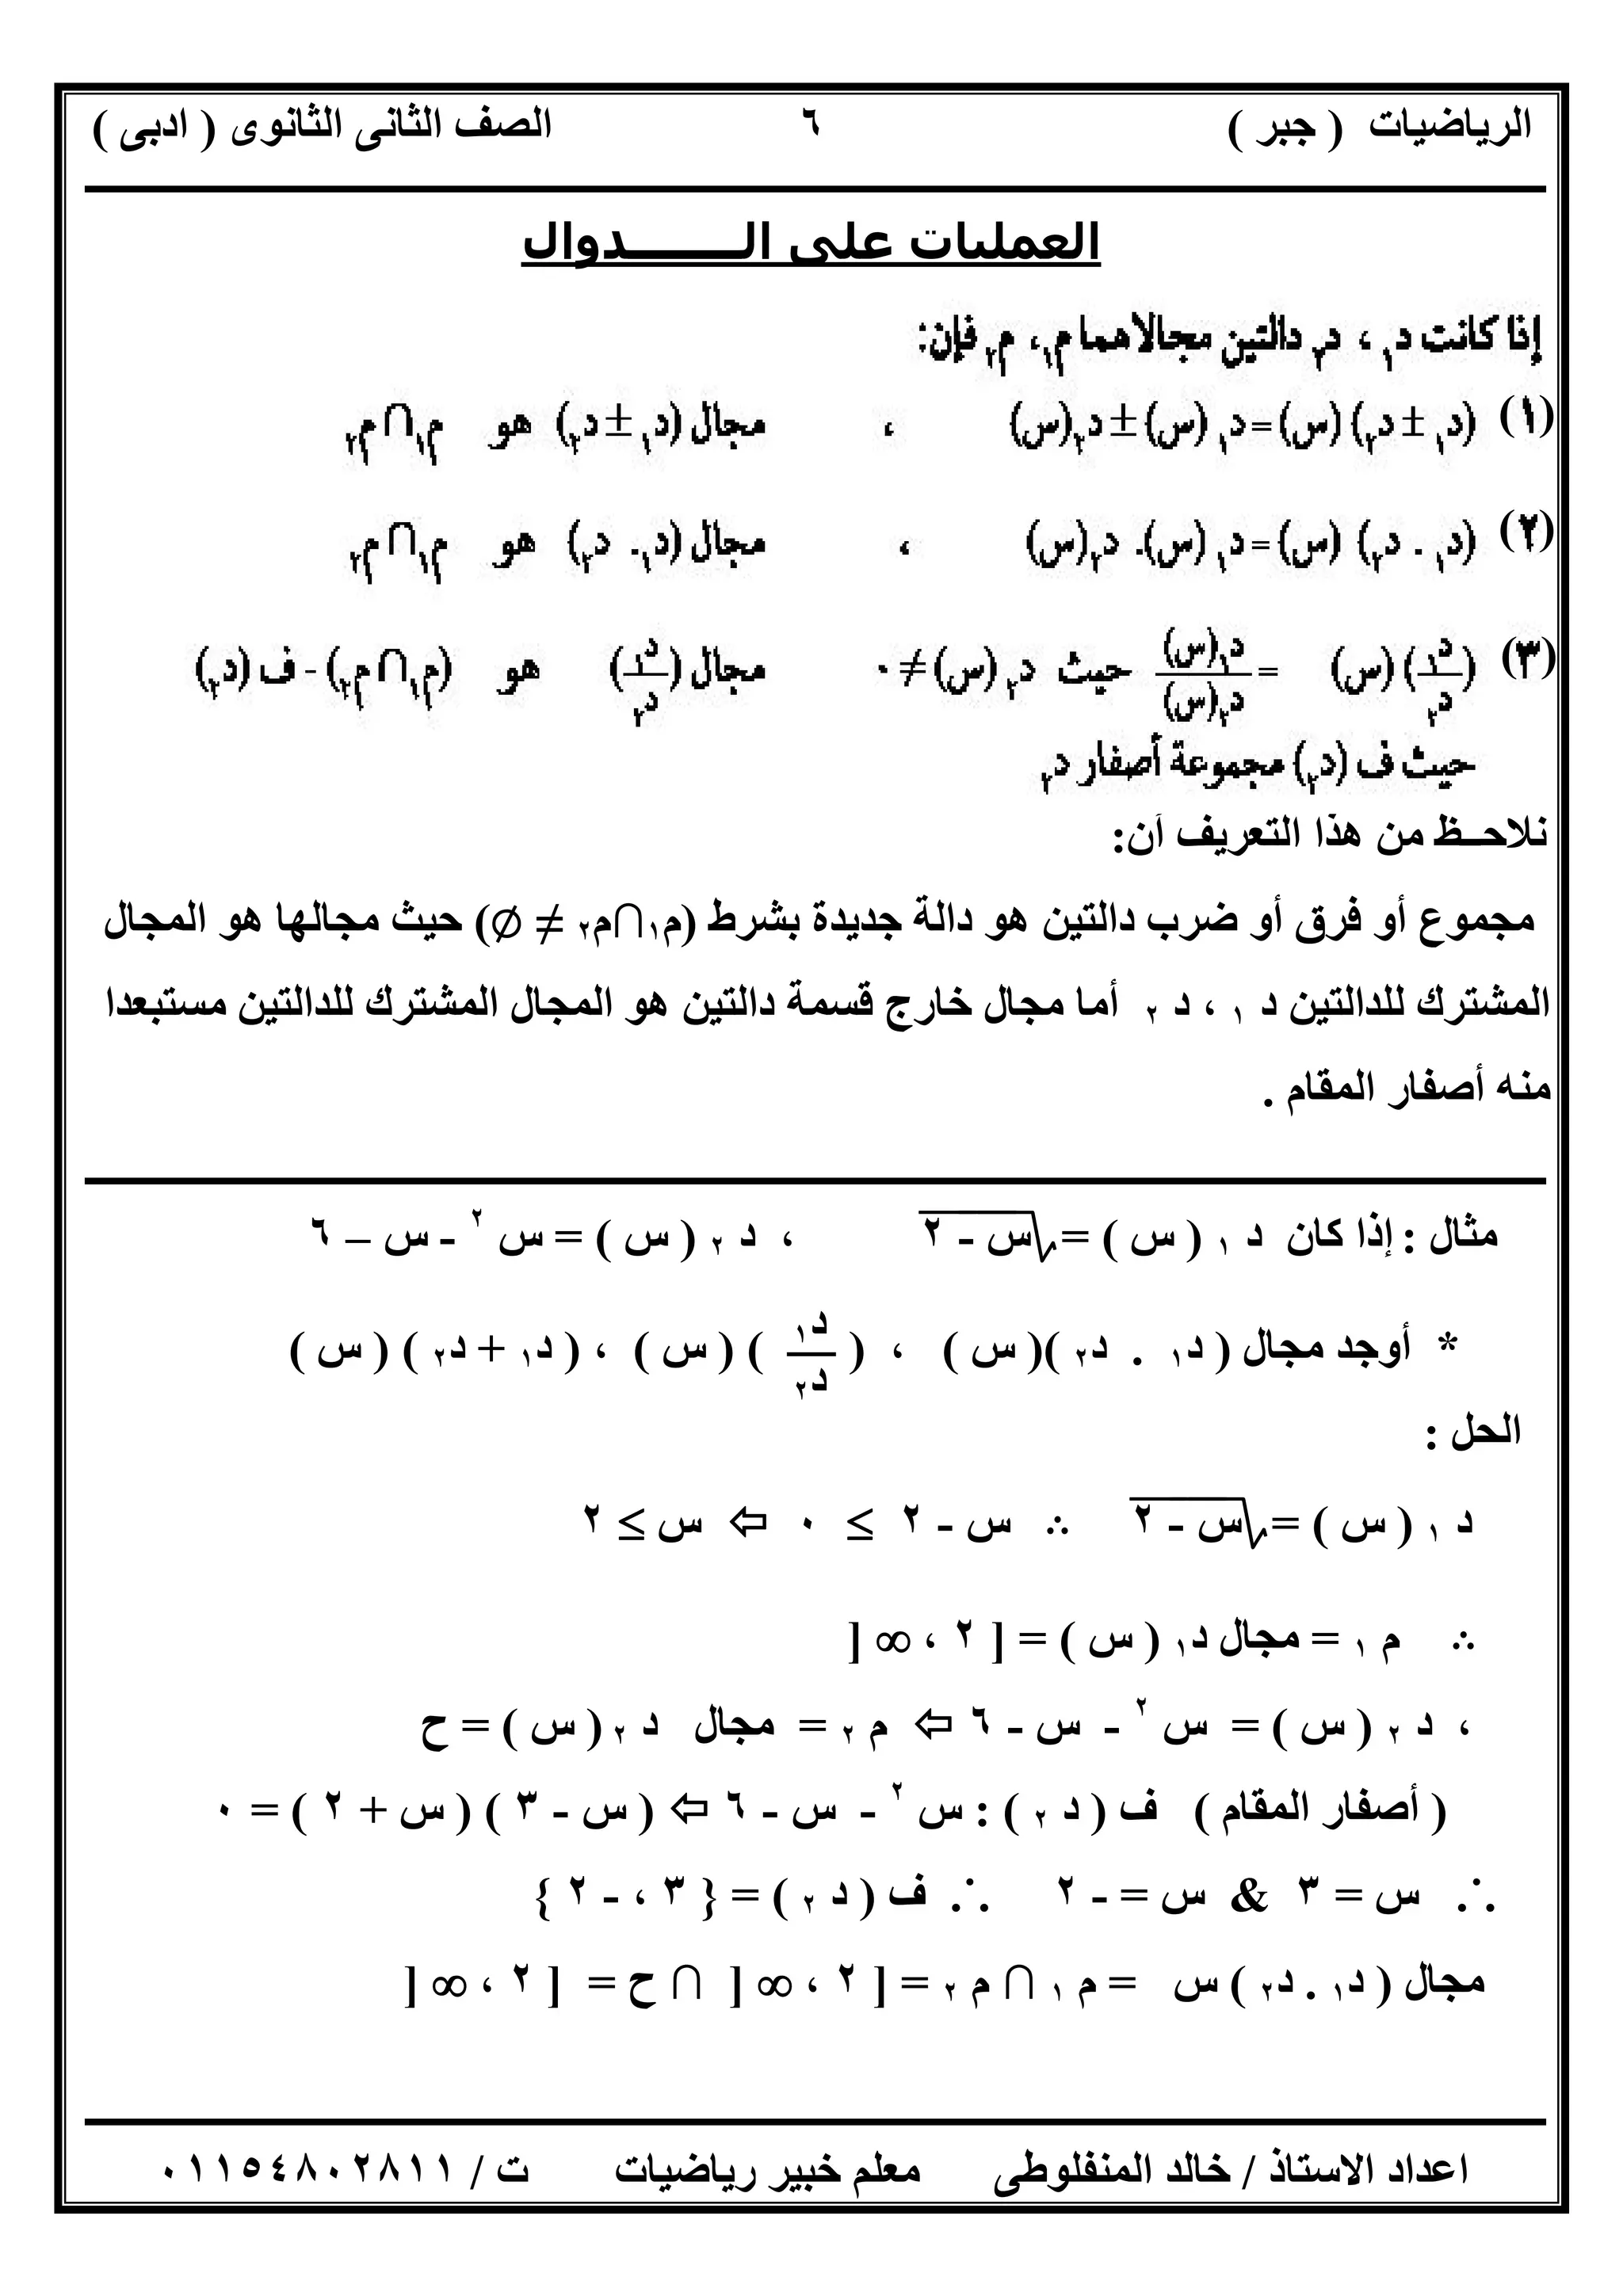 الرياضيات ( جبر ) ٦ الصف الثانى الثانوى ( ادبى )
العمليات على الـــــــدوال
إذا كانت د₁ ، د₂ دالتين مجالاهما م₁ ، م₂ فإن:
(١) (د₁ ± د₂) (س) = د₁ (س) ± د₂(س) ، مجال (د₁ ± د₂) هو م₁∩م₂
(٢) (د₁ . د₂) (س) = د₁ (س). د₂(س) ، مجال (د₁. د₂) هو م₁∩م₂
(٣) (د₁/د₂) (س) = د₁(س)/د₂(س) حيث د₂ (س) ≠ ٠ مجال (د₁/د₂) هو (م₁∩م₂) - ف (د₂)
حيث ف (د₂) مجموعة أصفار د₂
نلاحــظ من هذا التعريف أن:
مجموع أو فرق أو ضرب دالتين هو دالة جديدة بشرط (م₁∩م₂ ≠ ∅) حيث مجالها هو المجال
المشترك للدالتين د ₁ ، د ₂ أما مجال خارج قسمة دالتين هو المجال المشترك للدالتين مستبعدا
منه أصفار المقام .
مثال : إذا كان د ₁ ( س ) = √(س - ٢) ، د ₂ ( س ) = س² - س – ٦
* أوجد مجال ( د₁ . د₂ )( س ) ، ( د₁/د₂ ) ( س ) ، ( د₁ + د₂ ) ( س )
الحل :
د ₁ ( س ) = √(س - ٢) ∴ س - ٢ ≥ ٠ ⇦ س ≥ ٢
∴ م ₁ = مجال د₁ ( س ) = [ ٢ ، ∞ [
، د ₂ ( س ) = س² - س - ٦ ⇦ م ₂ = مجال د ₂ ( س ) = ح
( أصفار المقام ) ف ( د ₂ ) : س² - س - ٦ ⇦ ( س - ٣ ) ( س + ٢ ) = ٠
∴ س = ٣ & س = - ٢ ∴ ف ( د ₂ ) = { ٣ ، - ٢ }
مجال ( د₁ . د₂ ) س = م ₁ ∩ م ₂ = [ ٢ ، ∞ [ ∩ ح = [ ٢ ، ∞ [
اعداد الاستاذ / خالد المنفلوطى معلم خبير رياضيات ت / ٠١١٥٤٨٠٢٨١١